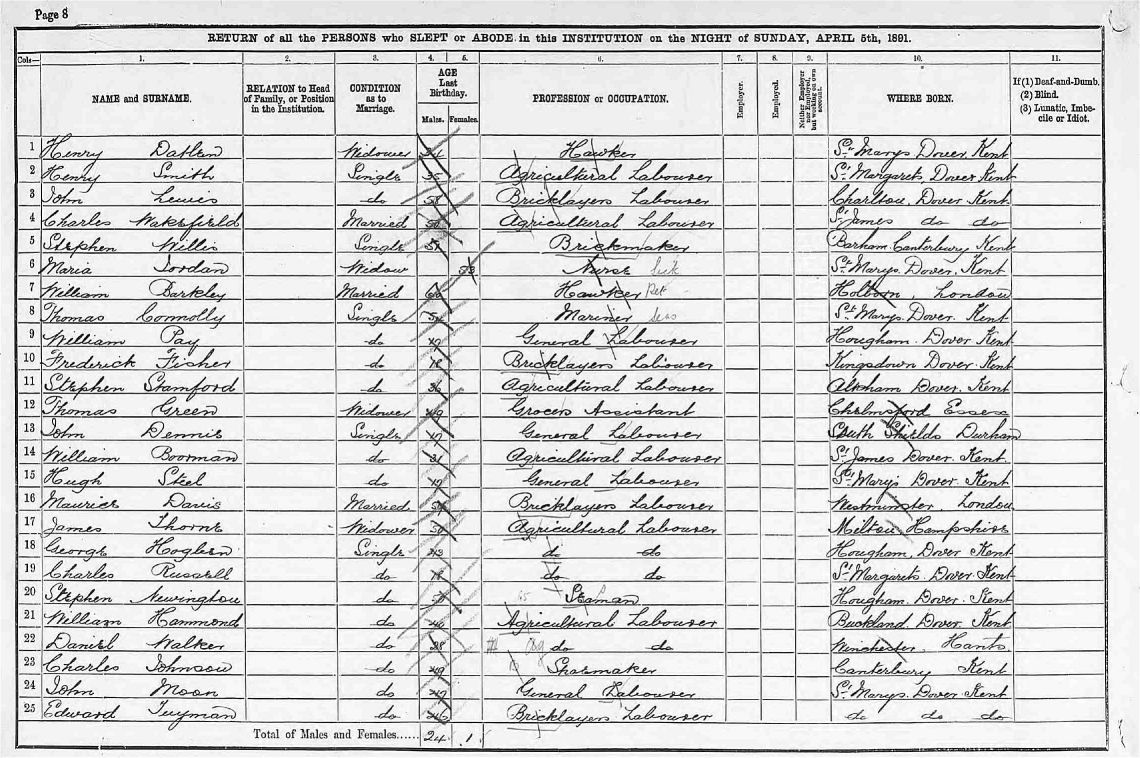 Page 8
RETURN of all the PERSONS who SLEPT or ABODE in this INSTITUTION on the NIGHT of SUNDAY, APRIL 5th, 1891.
Cols— 1. 2. 3. 4. 5. 6. 7. 8. 9. 10. 11.
NAME and SURNAME. RELATION to Head of Family, or Position in the Institution. CONDITION as to Marriage. AGE Last Birthday. Males. Females. PROFESSION or OCCUPATION. Employer. Employed. Neither Employer nor Employed, but working on own account. WHERE BORN. If (1) Deaf-and-Dumb. (2) Blind. (3) Lunatic, Imbecile or Idiot.
1 Henry Widower Hawker St. Marys Dover Kent
2 Henry Smith Single Agricultural Labourer St. Margarets, Dover Kent
3 John Lewis do 58 Bricklayers Labourer Charlton, Dover Kent
4 Charles Wakefield Married Agricultural Labourer St. James do do
5 Stephen Willis Single Brickmaker Barham Canterbury Kent
6 Maria Jordan Widow 53 Nurse Sick St. Marys Dover, Kent
7 William Barkley Married Hawker Holborn, London
8 Thomas Connolly Single Mariner St. Marys Dover. Kent
9 William Pay do General Labourer Hougham. Dover Kent
10 Frederick Fisher do Bricklayers Labourer Kingsdown Dover. Kent
11 Stephen Stamford do Agricultural Labourer Alkham Dover. Kent
12 Thomas Green Widower Grocers Assistant Chelmsford Essex
13 John Dennis Single General Labourer South Shields Durham
14 William Boorman do Agricultural Labourer St. James Dover. Kent
15 Hugh Steel do General Labourer St. Marys Dover. Kent
16 Maurice Davis Married Bricklayers Labourer Westminster. London
17 James Thorne Widower Agricultural Labourer Milton Hampshire
18 George Hogben Single do do Hougham, Dover Kent
19 Charles Russell do do do St. Margarets. Dover Kent
20 Stephen Newington do Seaman Hougham. Dover. Kent
21 William Hammond do Agricultural Labourer Buckland, Dover. Kent
22 Daniel Walker do do do Winchester. Hants
23 Charles Johnson do Shoemaker Canterbury Kent
24 John Moon do General Labourer St. Marys. Dover Kent
25 Edward Twyman do Bricklayers Labourer do do do
Total of Males and Females...... 24 1